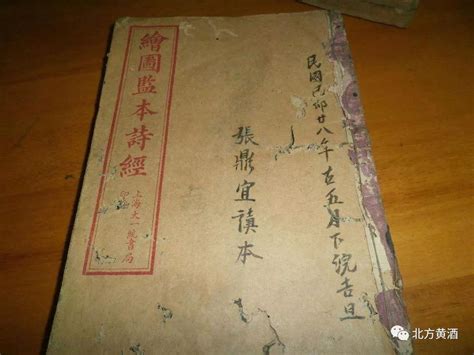 民國己卯廿八年古五月下浣吉旦
張鼎宜讀本
繪圖監本詩經
上海大一統書局
印
北方黄酒